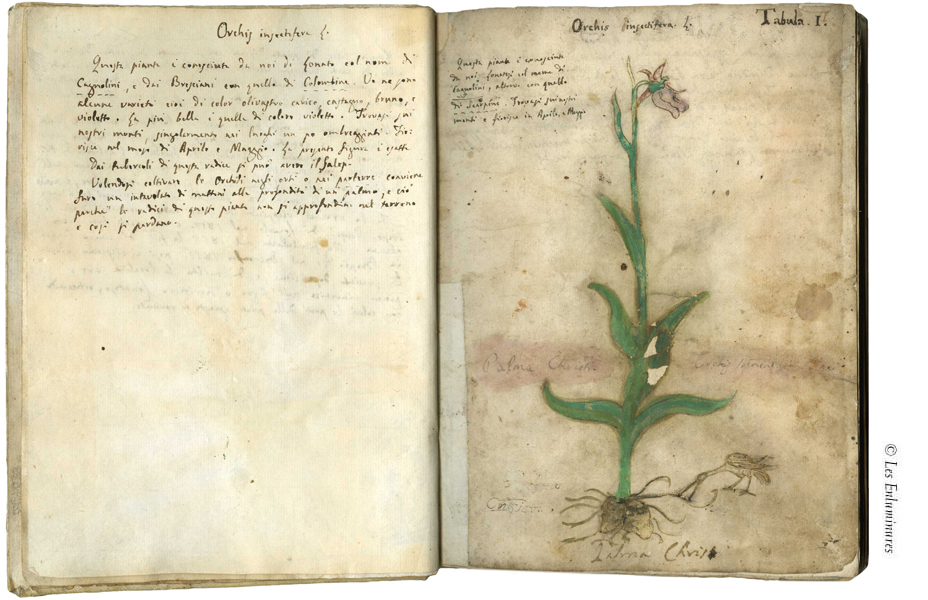 Orchis insectifera L.
Questa pianta è conosciuta da noi di Lonato col nome di
Cagnolini, e dai Bresciani con quello di Colombine. Ve ne sono
alcune varietà cioè di color olivastro carico, castagno, bruno, e
violetto. La più bella è quella di colore violetto. Trovasi sui
nostri monti, singolarmente nei luoghi un po ombreggiati. Fio-
risce nel mese di Aprile e Maggio. La presente figura è esatta
Dai tubercoli di questa radice si può avere il Salep.
Volendosi coltivare le Orchidi negli orti o nei parterre conviene
fare un intavolato di mattini alla profondità di un palmo, e ciò
perchè le radici di questa pianta non si approfondino nel terreno
e così si perdano.
Orchis insectifera. L.
Tabula. I.
Questa pianta è conosciuta
da noi Lonatesi col nome di
Cagnolini, altrove con quello
di Scarpini. Trovasi sui nostri
monti e fiorisce in Aprile, e Maggio
Palma Christi
Palma Christi
© Les Enluminures